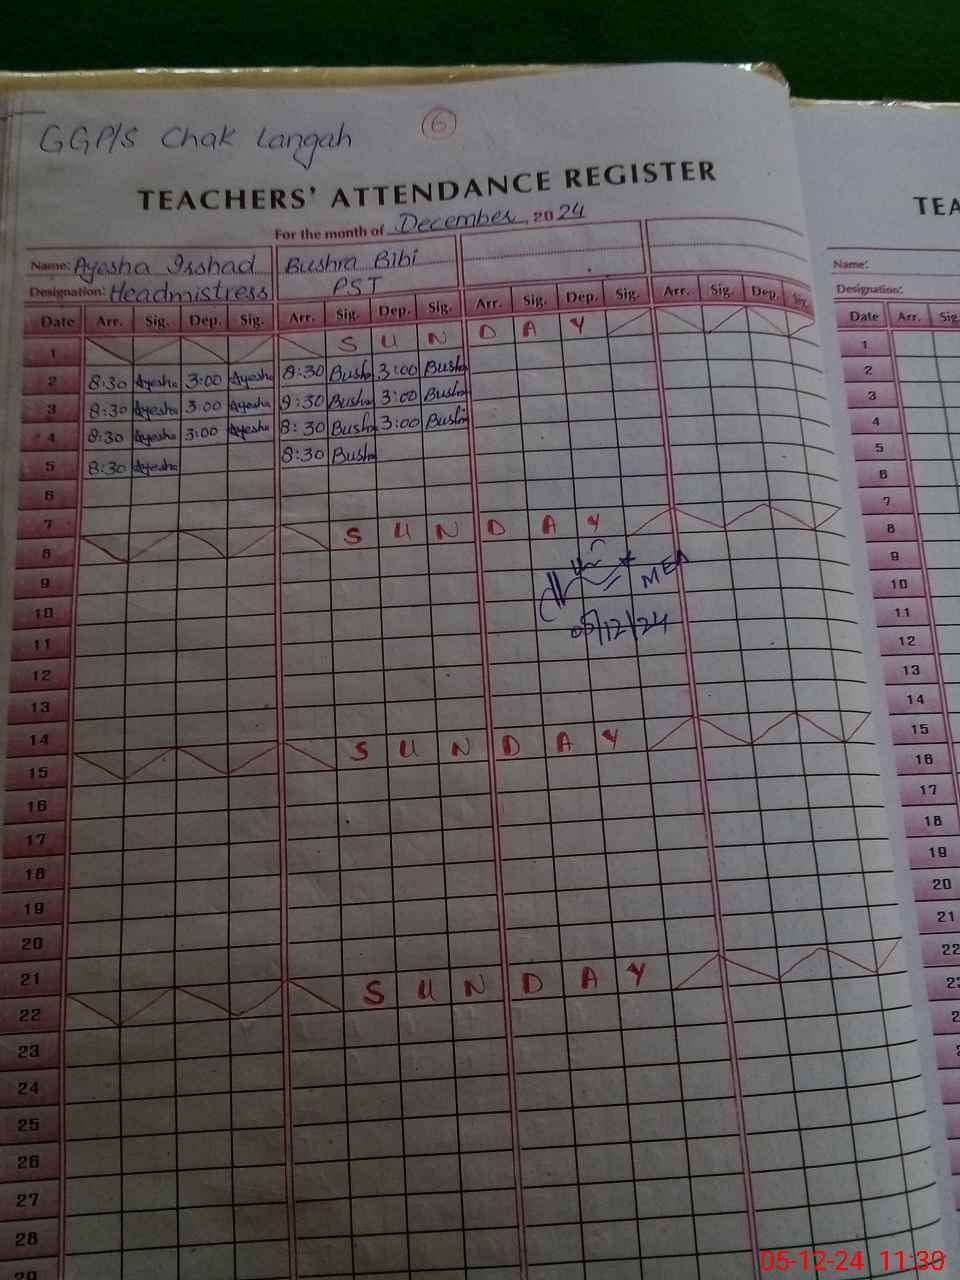 GGP/S Chak Langah
6
TEACHERS' ATTENDANCE REGISTER
For the month of December, 2024
Name: Ayesha Irshad Bushra Bibi
Designation: Headmistress PST
Date Arr. Sig. Dep. Sig. Arr. Sig. Dep. Sig. Arr. Sig. Dep. Sig. Arr. Sig. Dep. Sig.
1 SUNDAY
2 8:30 Ayesha 3:00 Ayesha 8:30 Bush 3:00 Bush
3 8:30 Ayesha 3:00 Ayesha 8:30 Bush 3:00 Bush
4 8:30 Ayesha 3:00 Ayesha 8:30 Bush 3:00 Bush
5 8:30 Ayesha 8:30 Bush
6
7
8 SUNDAY
9
MEA
10
05/12/24
11
12
13
14
15 SUNDAY
16
17
18
19
20
21
22 SUNDAY
23
24
25
26
27
28
29
TEA
Name:
Designation:
Date Arr. Sig
1
2
3
4
5
6
7
8
9
10
11
12
13
14
15
16
17
18
19
20
21
22
05-12-24 11:30